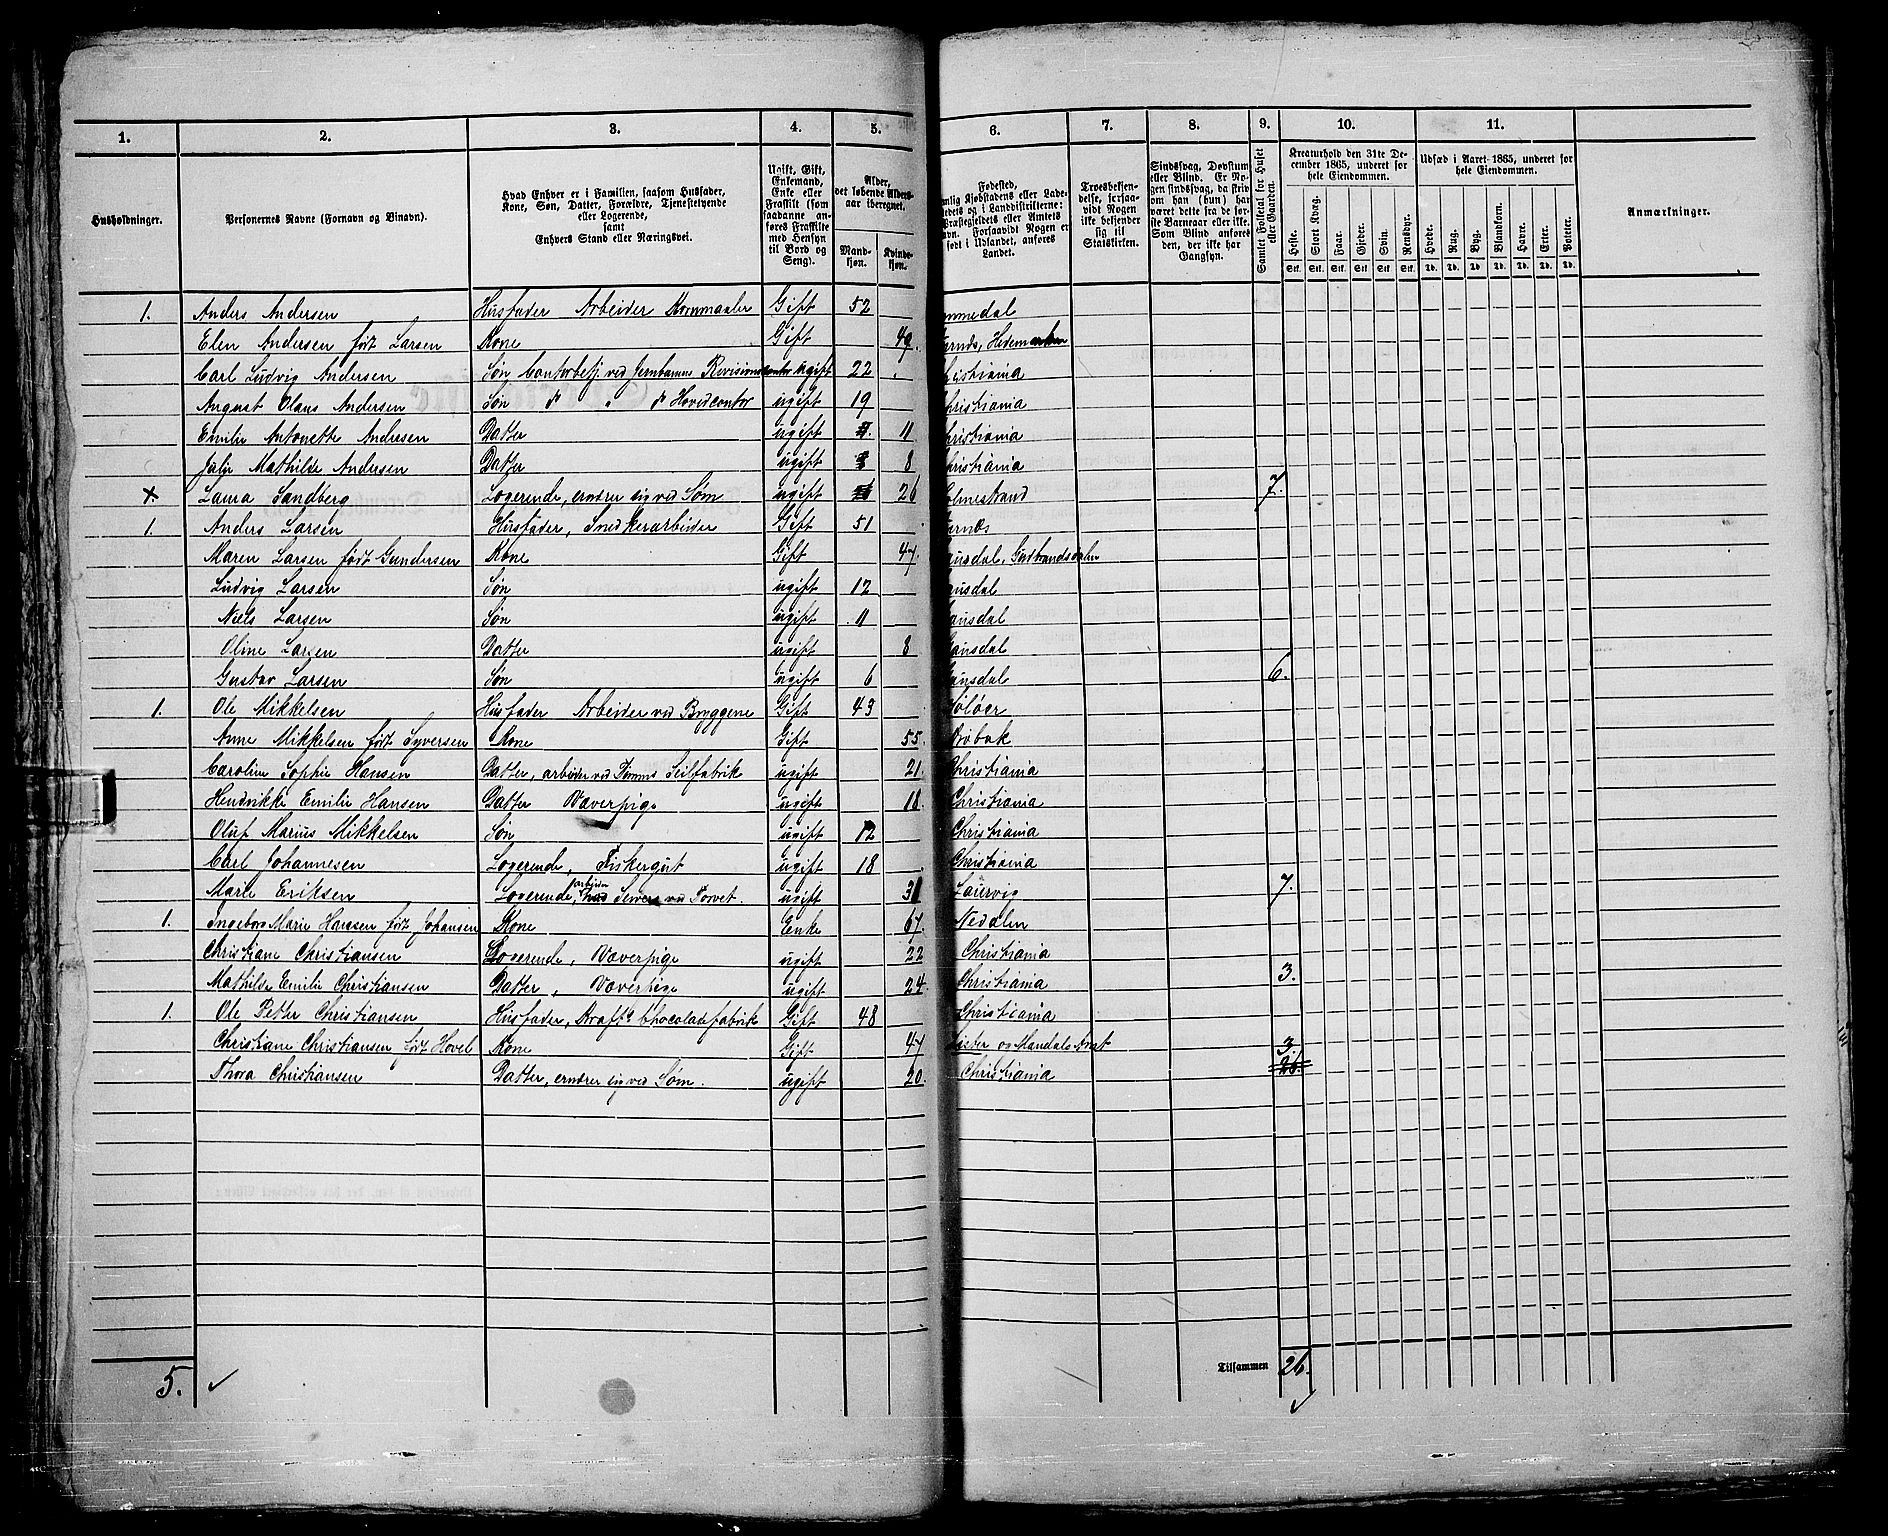 1. 2. 3. 4. 5. 6. 7. 8. 9. 10. 11.
Husholdninger.
Personernes Navne (Fornavn og Binavn).
Hvad Enhver er i Familien, saasom Husfader,
Kone, Søn, Datter, Forældre, Tjenestetyende
eller Logerende,
samt
Enhvers Stand eller Næringsvei.
Ugift, Gift,
Enkemand,
Enke eller
Fraskilt (som
saadanne an-
føres Fraskilte
med Hensyn
til Bord og
Seng).
Alder,
det løbende Alders-
aar iberegnet.
Mand-
kjøn.
Kvinde-
kjøn.
Fødested,
mlig Kjøbstadens eller Lade-
stedets og i Landdistrikterne:
Præstegjeldets eller Amtets
avn. Forsaavidt Nogen er
født i Udlandet, anføres
Landet.
Troesbekjen-
delse, forsaa-
vidt Nogen
ikke bekjender
sig til
Statskirken.
Sindssvag, Døvstum
eller Blind. Er No-
gen sindssvag, da skriv
om han (hun) har
været dette fra de før-
ste Barneaar eller ikke.
Som Blind anføres
den, der ikke har
Gangsyn.
Samlet Folketal for Huset
eller Gaarden.
Kreaturhold den 31te De-
cember 1865, underet for
hele Eiendommen.
Heste. Stort Kvæg. Faar. Gjeder. Svin. Rensdyr.
Stk. Stk. Stk. Stk. Stk. Stk.
Udsæd i Aaret 1865, underet for
hele Eiendommen.
Hvede. Rug. Byg. Blandkorn. Havre. Erter. Poteter.
Td. Td. Td. Td. Td. Td. Td.
Anmærkninger.
1. Anders Andersen Husfader Arbeider Kornmaaler Gift 52 ommedal
Elen Andersen født Larsen Kone Gift 49. Hedemarken
Carl Ludvig Andersen Søn Contorbetj. ved Jernbanens Revisionscontor ugift 22 hristiania
August Olaus Andersen Søn do " do Hovedcontor ugift 19 Christiania
Emilie Antonette Andersen Datter ugift 11 Christiania
Julie Mathilde Andersen Datter ugift 8 Christiania
x Laura Sandberg Logerende, ernærer sig ved Søm ugift 26 olmestrand 7.
1. Anders Larsen Husfader, Snedkerarbeider Gift 51
Maren Larsen født Gundersen Kone Gift 47 ausdal, Gudbrandsdalen
Ludvig Larsen Søn ugift 12 ausdal
Niels Larsen Søn ugift 11 ausdal
Oline Larsen Datter ugift 8 Gausdal
Gustav Larsen Søn ugift 6 Gausdal 6.
1. Ole Mikkelsen Husfader Arbeider ved Bryggene Gift 43 Soløer
Anne Mikkelsen født Syversen Kone Gift 55. Drøbak
Caroline Sophie Hansen Datter, arbeider ved Timms Seilfabrik ugift 21. Christiania
Hendrikke Emilie Hansen Datter Væverpige ugift 18. Christiania
Oluf Marius Mikkelsen Søn ugift 12 Christiania
Carl Johannesen Logerende, Fiskergut ugift 18 Christiania
Marie Eriksen Logerende, arbeider ved Torvet. ugift 31 Laurvig 7.
1. Ingeborg Marie Hansen født Johansen Kone Enke 67. Nedalen
Christiane Christiansen Logerende, Væverpige ugift 22 Christiania
Mathilde Emilie Christiansen Datter, Væverpige ugift 24. Christiania 3.
1. Ole Petter Christiansen Husfader, Krafts Chocoladefabrik Gift 48 Christiania
Christiane Christiansen født Hovel Kone Gift 47 ister og Mandals Amt 3
Thora Christiansen Datter, ernærer sig ved Søm. ugift 20. Christiania 26.
5.
Tilsammen 26.